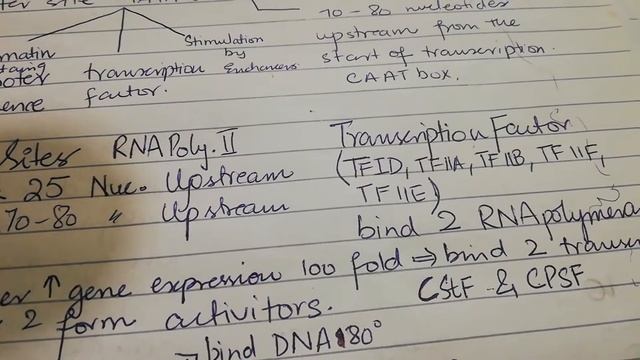 70-80 nucleotides
upstream from the
start of transcription.
CAAT box.
Stimulation
by
Enchancers
transcription
factor.
Sites RNA Poly. II
25 Nuc. Upstream
70-80 " Upstream
Transcription Factor
(TFID, TFIIA, TFIIB, TFIIF,
TFIIE)
bind 2 RNA polymera
↑ gene expression 100 fold ⇒ bind 2 transc
2 form activitors.
CStF & CPSF
→ bind DNA 180°